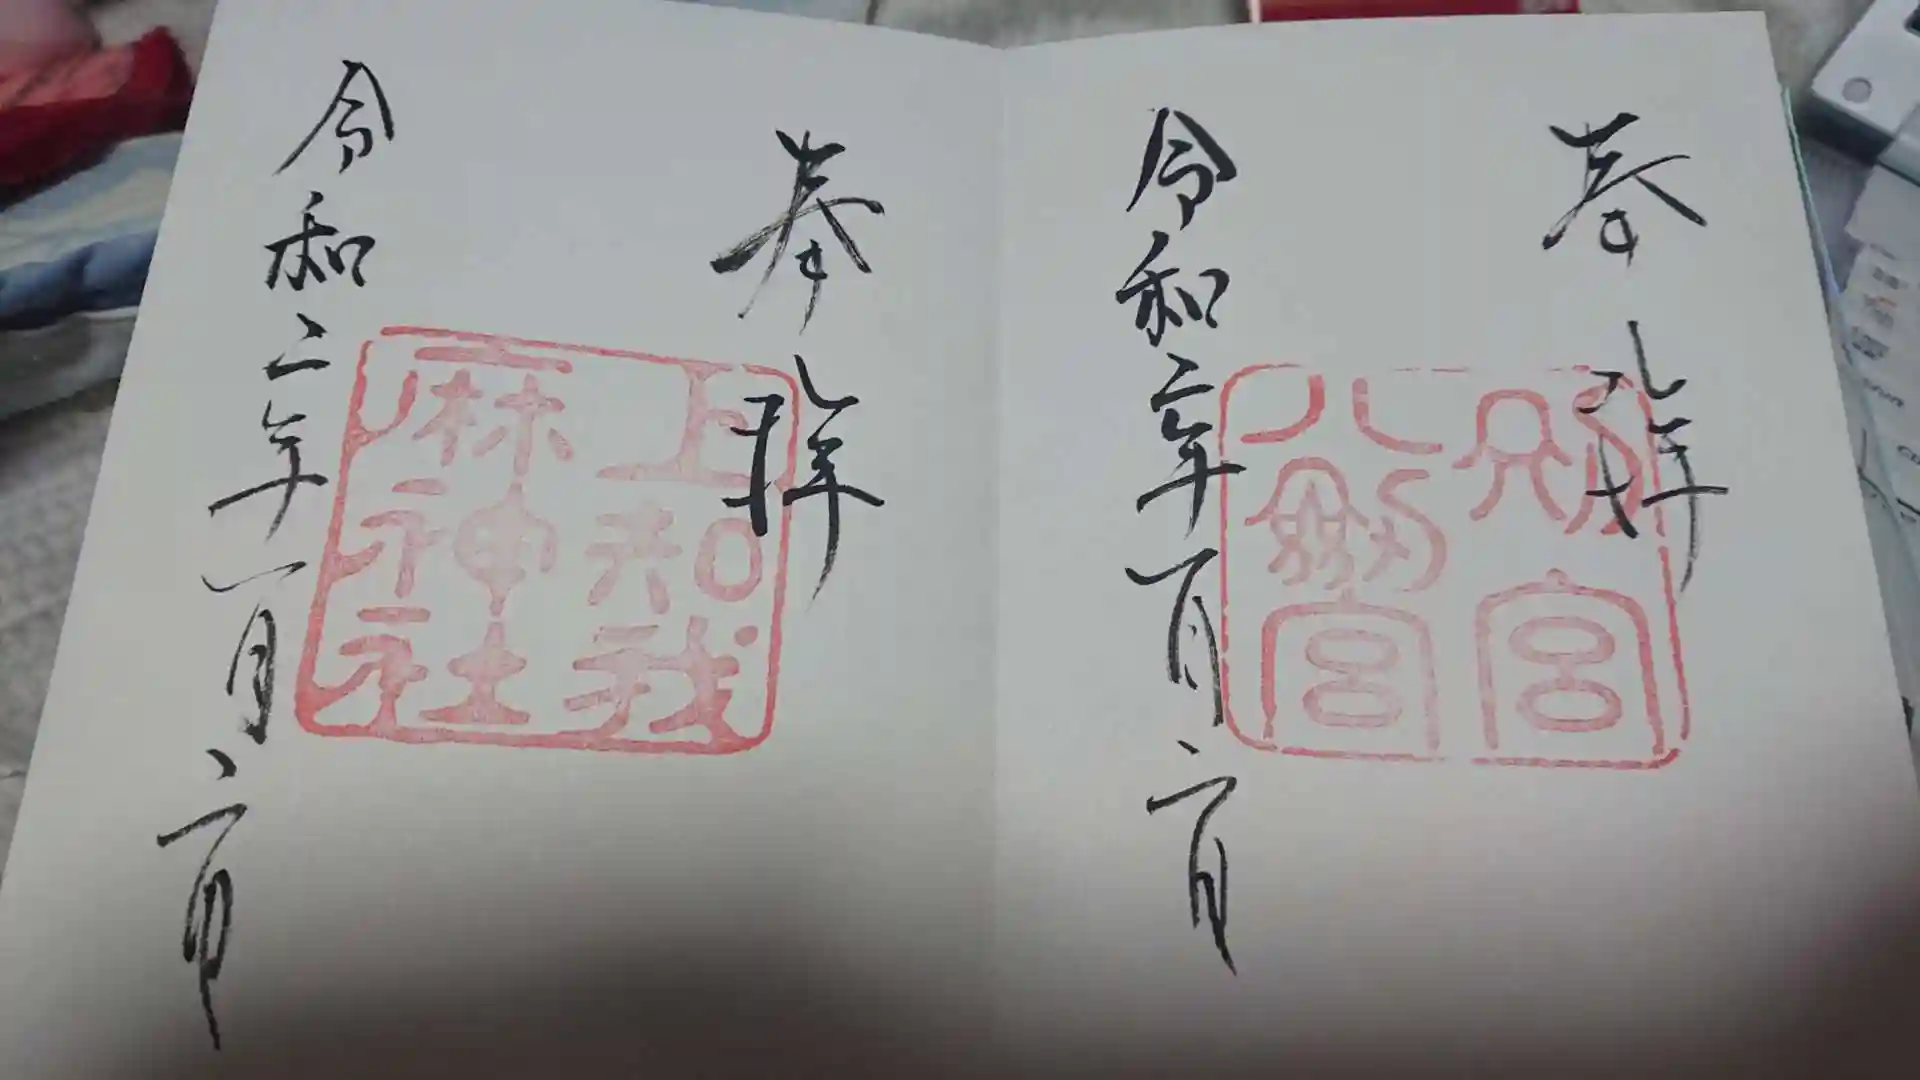 奉拝
別宮
八剱宮
令和二年一月二日
奉拝
上知我
麻神社
令和二年一月二日